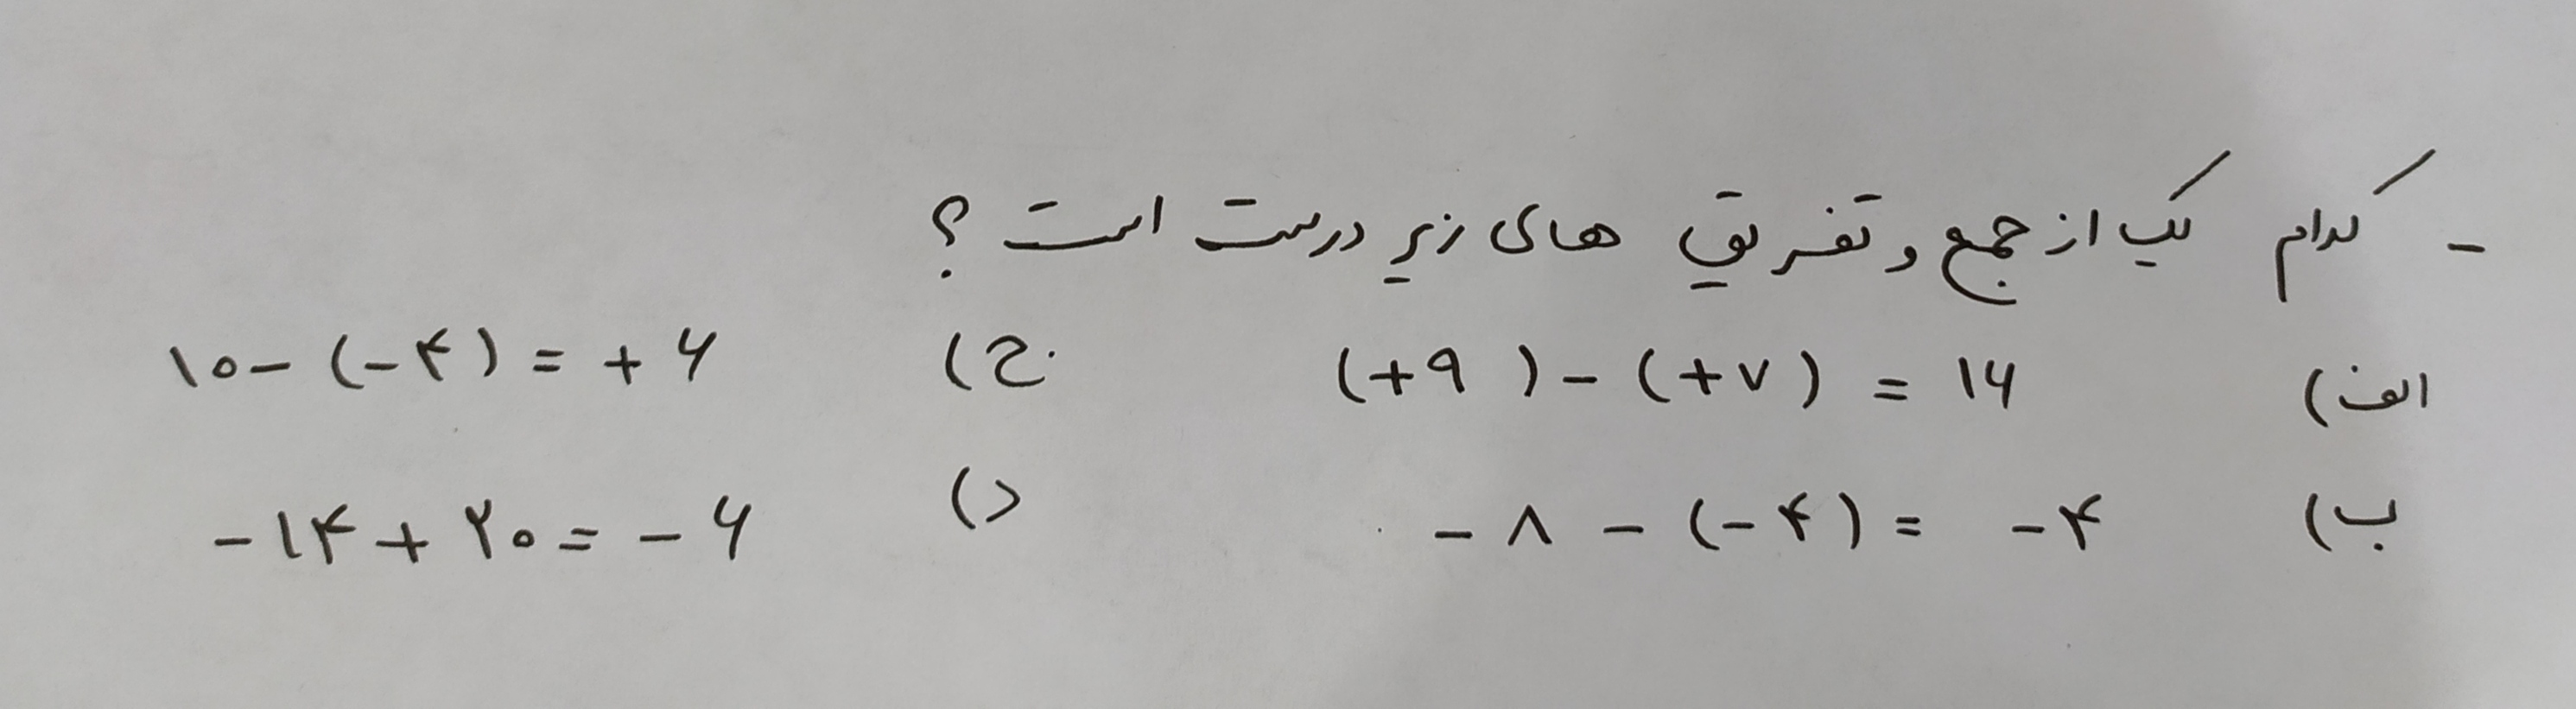 - کدام یک از جمع و تفریق های زیر درست است ؟
الف) (+۹) - (+۷) = ۱۶ ج) ۱۰ - (-۴) = +۶
ب) -۸ - (-۴) = -۴ د) -۱۴ + ۲۰ = -۶